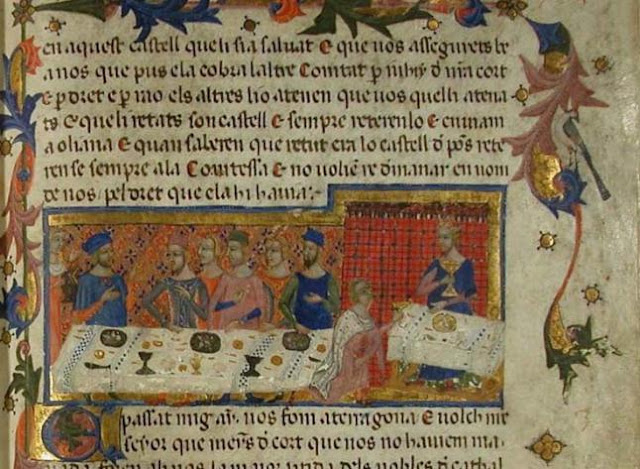 en aquest castell queli sia saluat E que uos assegurets be
a nos que pus ela cobra laltre Comtat p iuhij d nr̄a cort
E p dret e p rao els altres ho atenen que uos quelli atena
ts E queli retats son castell E sempre reterenlo E enuiam
a oliana E quan saberen que retut era lo castell d pōs rete
ren se sempre ala Comtessa E no uolien re dmanar en nom
de nos peldret que ela hi hauia:.
E passat mig ay. nos fom a terragona E uolch nr̄e
seyor que meyns d cort que nos no hauiem ma
nada foren ab nos la maior dels nobles d cathal